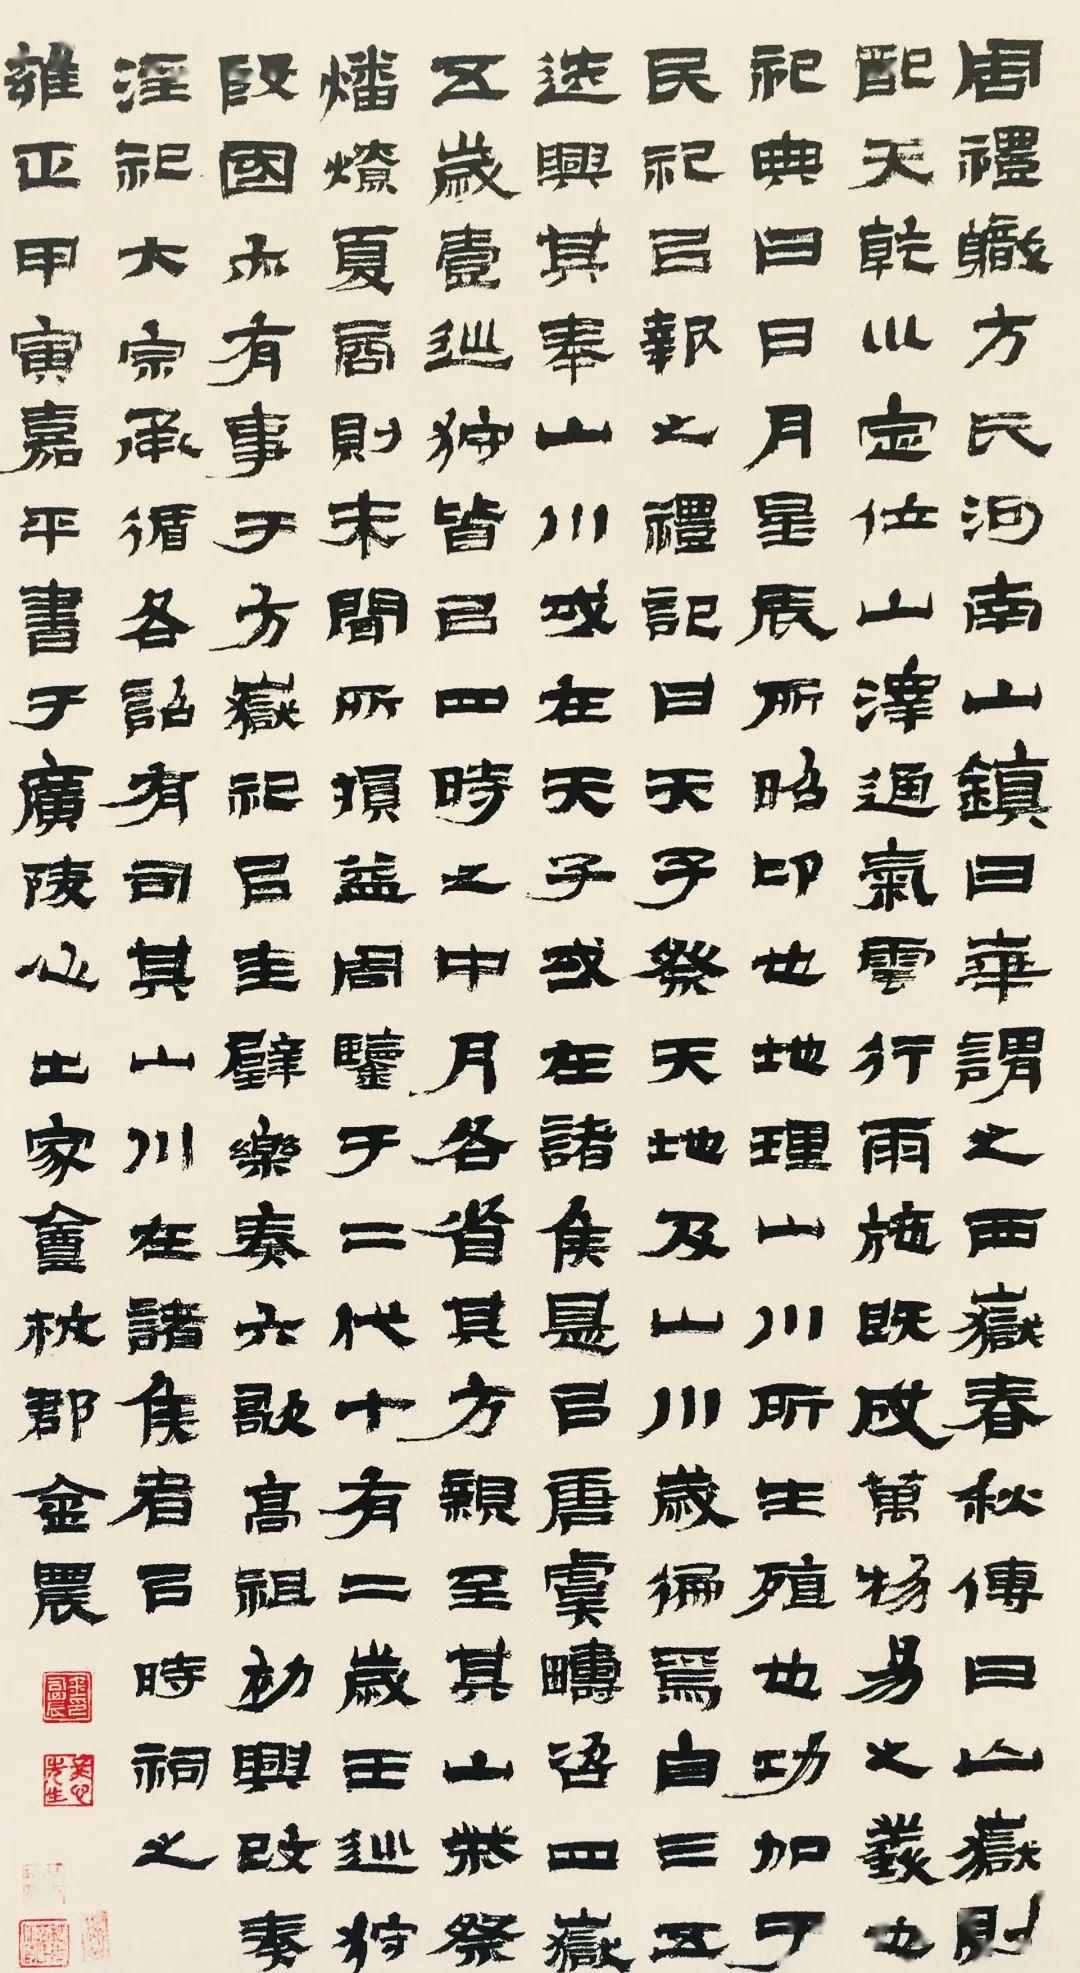 周禮職方氏河南山鎮曰華謂之西嶽春秋傳曰山嶽則
配天乾巛定位山澤通氣雲行雨施既成萬物易之義也
祀典曰日月星辰所昭卬也地理山川所生殖也功加于
民祀㠯報之禮記曰天子祭天地及山川歲徧焉自三五
迭興其奉山川或在天子或在諸侯是㠯唐虞疇咨四嶽
五歲壹巡狩皆㠯四時之中月各省其方親至其山柴祭
燔燎夏商則未聞所損益周鑒于二代十有二歲王巡狩
殷國亦有事于方嶽祀㠯圭璧樂奏六歌高祖初興改秦
淫祀大宗承循各詔有司其山川在諸侯者㠯時祠之
雍正甲寅嘉平書于廣陵心出家盦杭郡金農
冬心先生